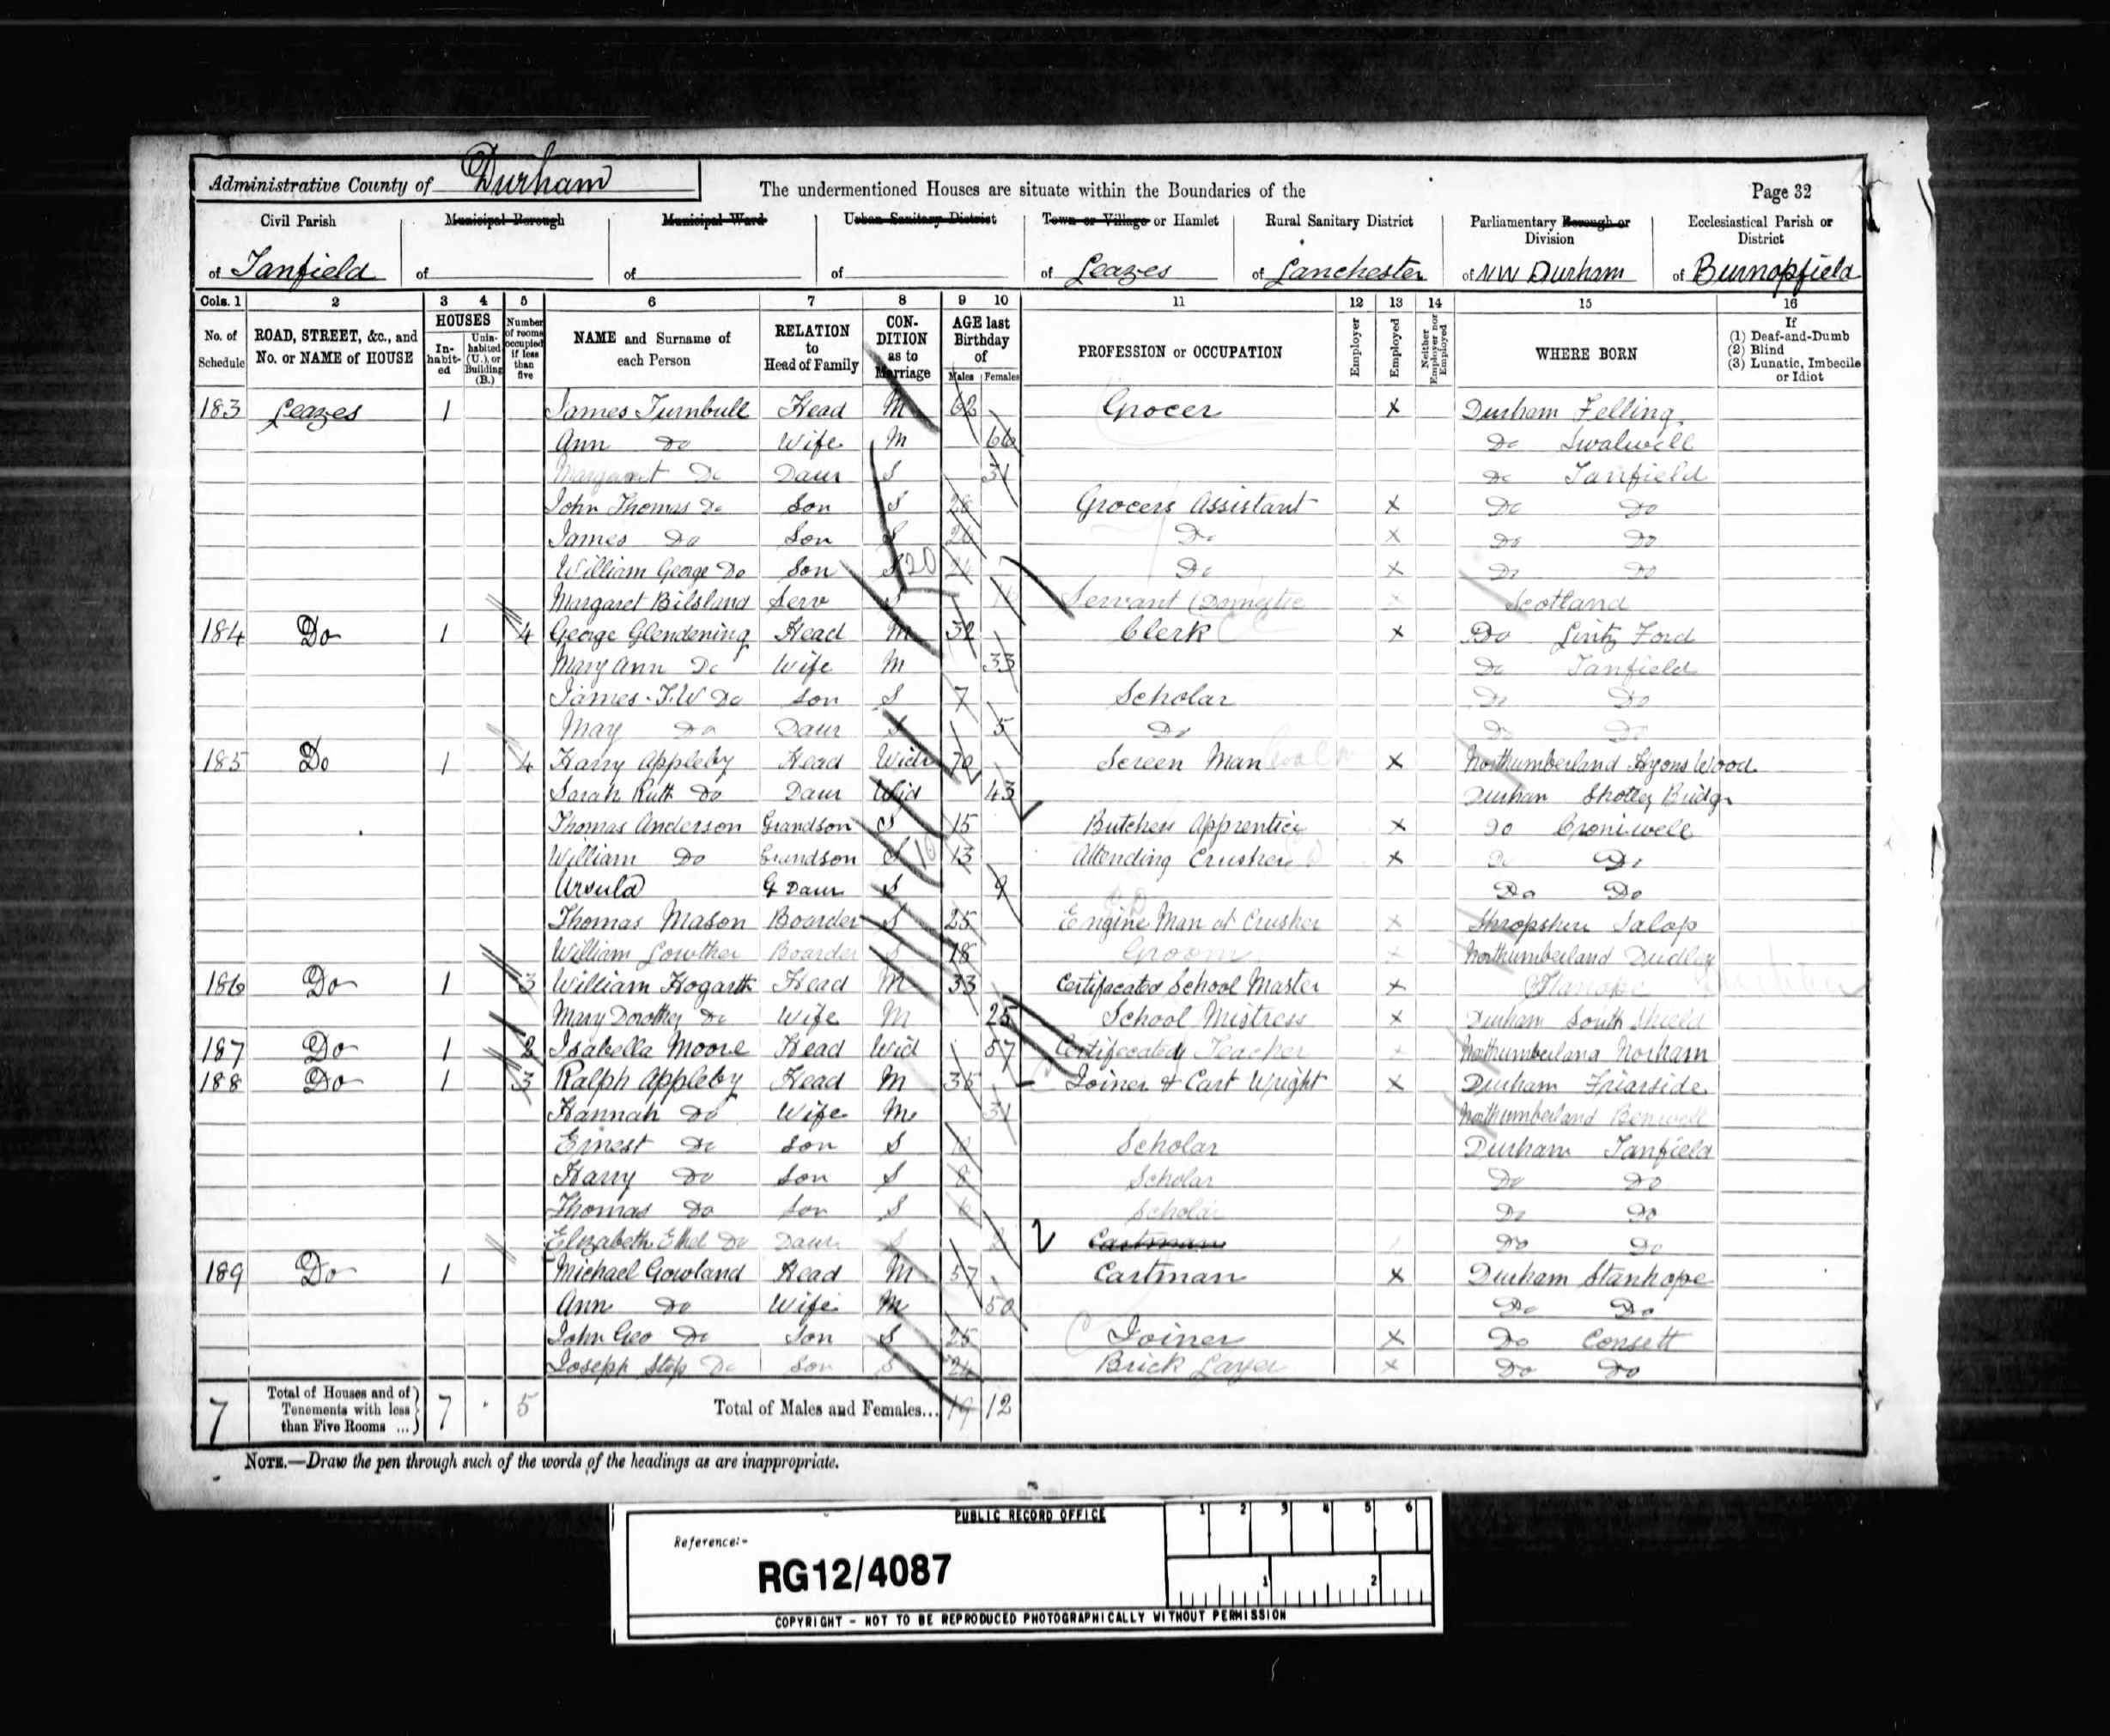 Administrative County of Durham The undermentioned Houses are situate within the Boundaries of the Page 32
Civil Parish Municipal Borough Municipal Ward Urban Sanitary District Town or Village or Hamlet Rural Sanitary District Parliamentary Borough or Division Ecclesiastical Parish or District
of Tanfield of of of of Leazes of Lanchester of NW Durham of Burnopfield
Cols. 1 2 3 4 5 6 7 8 9 10 11 12 13 14 15 16
No. of Schedule ROAD, STREET, &c., and No. or NAME of HOUSE HOUSES Inhabited Uninhabited (U.), or Building (B.) Number of rooms occupied if less than five NAME and Surname of each Person RELATION to Head of Family CONDITION as to Marriage AGE last Birthday of Males Females PROFESSION or OCCUPATION Employer Employed Neither Employer nor Employed WHERE BORN If (1) Deaf-and-Dumb (2) Blind (3) Lunatic, Imbecile or Idiot
183 Leazes 1 James Turnbull Head M 62 Grocer X Durham Felling
Ann Do Wife M 66 Do Swalwell
Margaret Do Daur S 31 Do Tanfield
John Thomas Do Son S 28 Grocers Assistant X Do Do
James Do Son S 26 Do X Do Do
William George Do Son S 20 Do X Do Do
Margaret Bilsland Serv S Servant (Domestic X Scotland
184 Do 1 4 George Glendening Head M 32 Clerk X Do Lintz Ford
Mary Ann Do Wife M 33 Do Tanfield
James T.W Do Son S 7 Scholar Do Do
May Do Daur S 5 Do Do Do
185 Do 1 4 Harry Appleby Head Widr 70 Screen Man X Northumberland Hyons Wood
Sarah Ruth Do Daur Wid 43 Durham Shotley Bridge
Thomas Anderson Grandson S 15 Butchers Apprentice X Do Croniwell
William Do Grandson S 13 Attending Crusher X Do Do
Ursula G Daur S 9 Do Do
Thomas Mason Boarder S 25 Engine Man at Crusher X Shropshire Salop
William Lowther Boarder S 18 Groom X Northumberland Dudley
186 Do 1 3 William Hogarth Head M 33 Certifecated School Master X
Mary Dorothy Do Wife M 25 School Mistress X Durham South Shield
187 Do 1 2 Isabella Moore Head Wid 57 Certifecated Teacher X Northumberland Norham
188 Do 1 3 Ralph Appleby Head M 35 Joiner & Cart Wright X Durham Friarside
Hannah Do Wife M 31 Northumberland Benwell
Ernest Do Son S 10 Scholar Durham Tanfield
Harry Do Son S 8 Scholar Do Do
Thomas Do Son S 6 Scholar Do Do
Elizabeth Ethel Do Daur S 2 Cartman Do Do
189 Do 1 Michael Gowland Head M 57 Cartman X Durham Stanhope
Ann Do Wife M 50 Do Do
John Geo Do Son S 25 Joiner X Do Consett
Joseph Step Do Son S Brick Layer X Do Do
7 Total of Houses and of Tenements with less than Five Rooms ... 7 5 Total of Males and Females... 19 12
NOTE.—Draw the pen through such of the words of the headings as are inappropriate.
PUBLIC RECORD OFFICE 1 2 3 4 5 6
Reference:-
RG12/4087 1 2
COPYRIGHT - NOT TO BE REPRODUCED PHOTOGRAPHICALLY WITHOUT PERMISSION